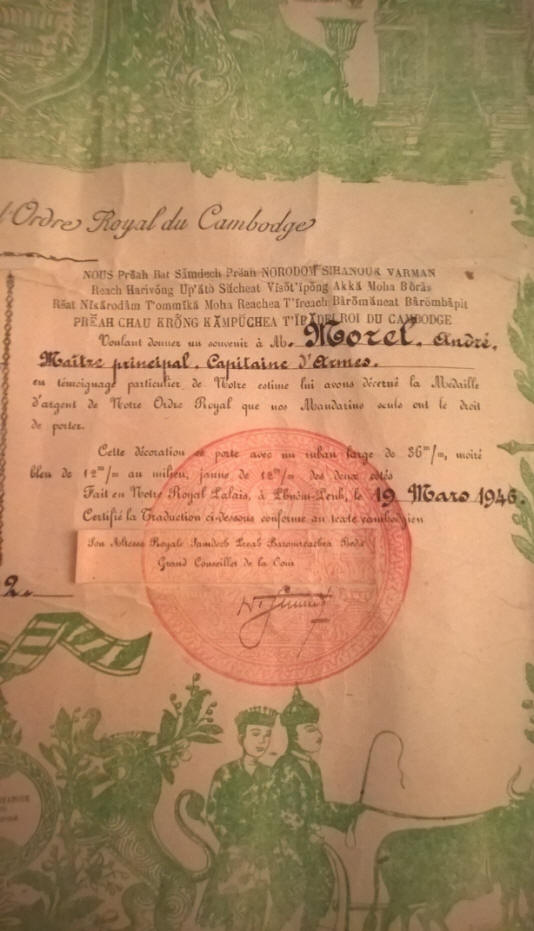 l'Ordre Royal du Cambodge
NOUS Prĕah Bat Sâmdech Prĕah NORODOM SIHANOUK VARMAN
Reach Harivông Up'âtô Sŭcheat Vĭsŏt'ĭpông Akkâ Moha Bŏrâs
Rôat Nĭkârodâm T'ommĭkâ Moha Reachea T'ĭreach Bârômâneat Bârômbâpĭt
PRĔAH CHAU KRŎNG KÂMPŬCHEA T'ĬPÂDEI ROI DU CAMBODGE
Voulant donner un souvenir à M. Morel, André,
Maître principal, Capitaine d'Armes.
en témoignage particulier de Notre estime lui avons décerné la Médaille
d'argent de Notre Ordre Royal que nos Mandarins seuls ont le droit
de porter.
Cette décoration se porte avec un ruban large de 36 m/m, moiré
bleu de 12 m/m au milieu, jaune de 12 m/m des deux côtés
Fait en Notre Royal Palais, à Phnôm-Penh, le 19 Mars 1946.
Certifié la Traduction ci-dessous conforme au texte cambodgien
Son Altesse Royale Samdech Preah
Grand Conseiller de la Cour
2.